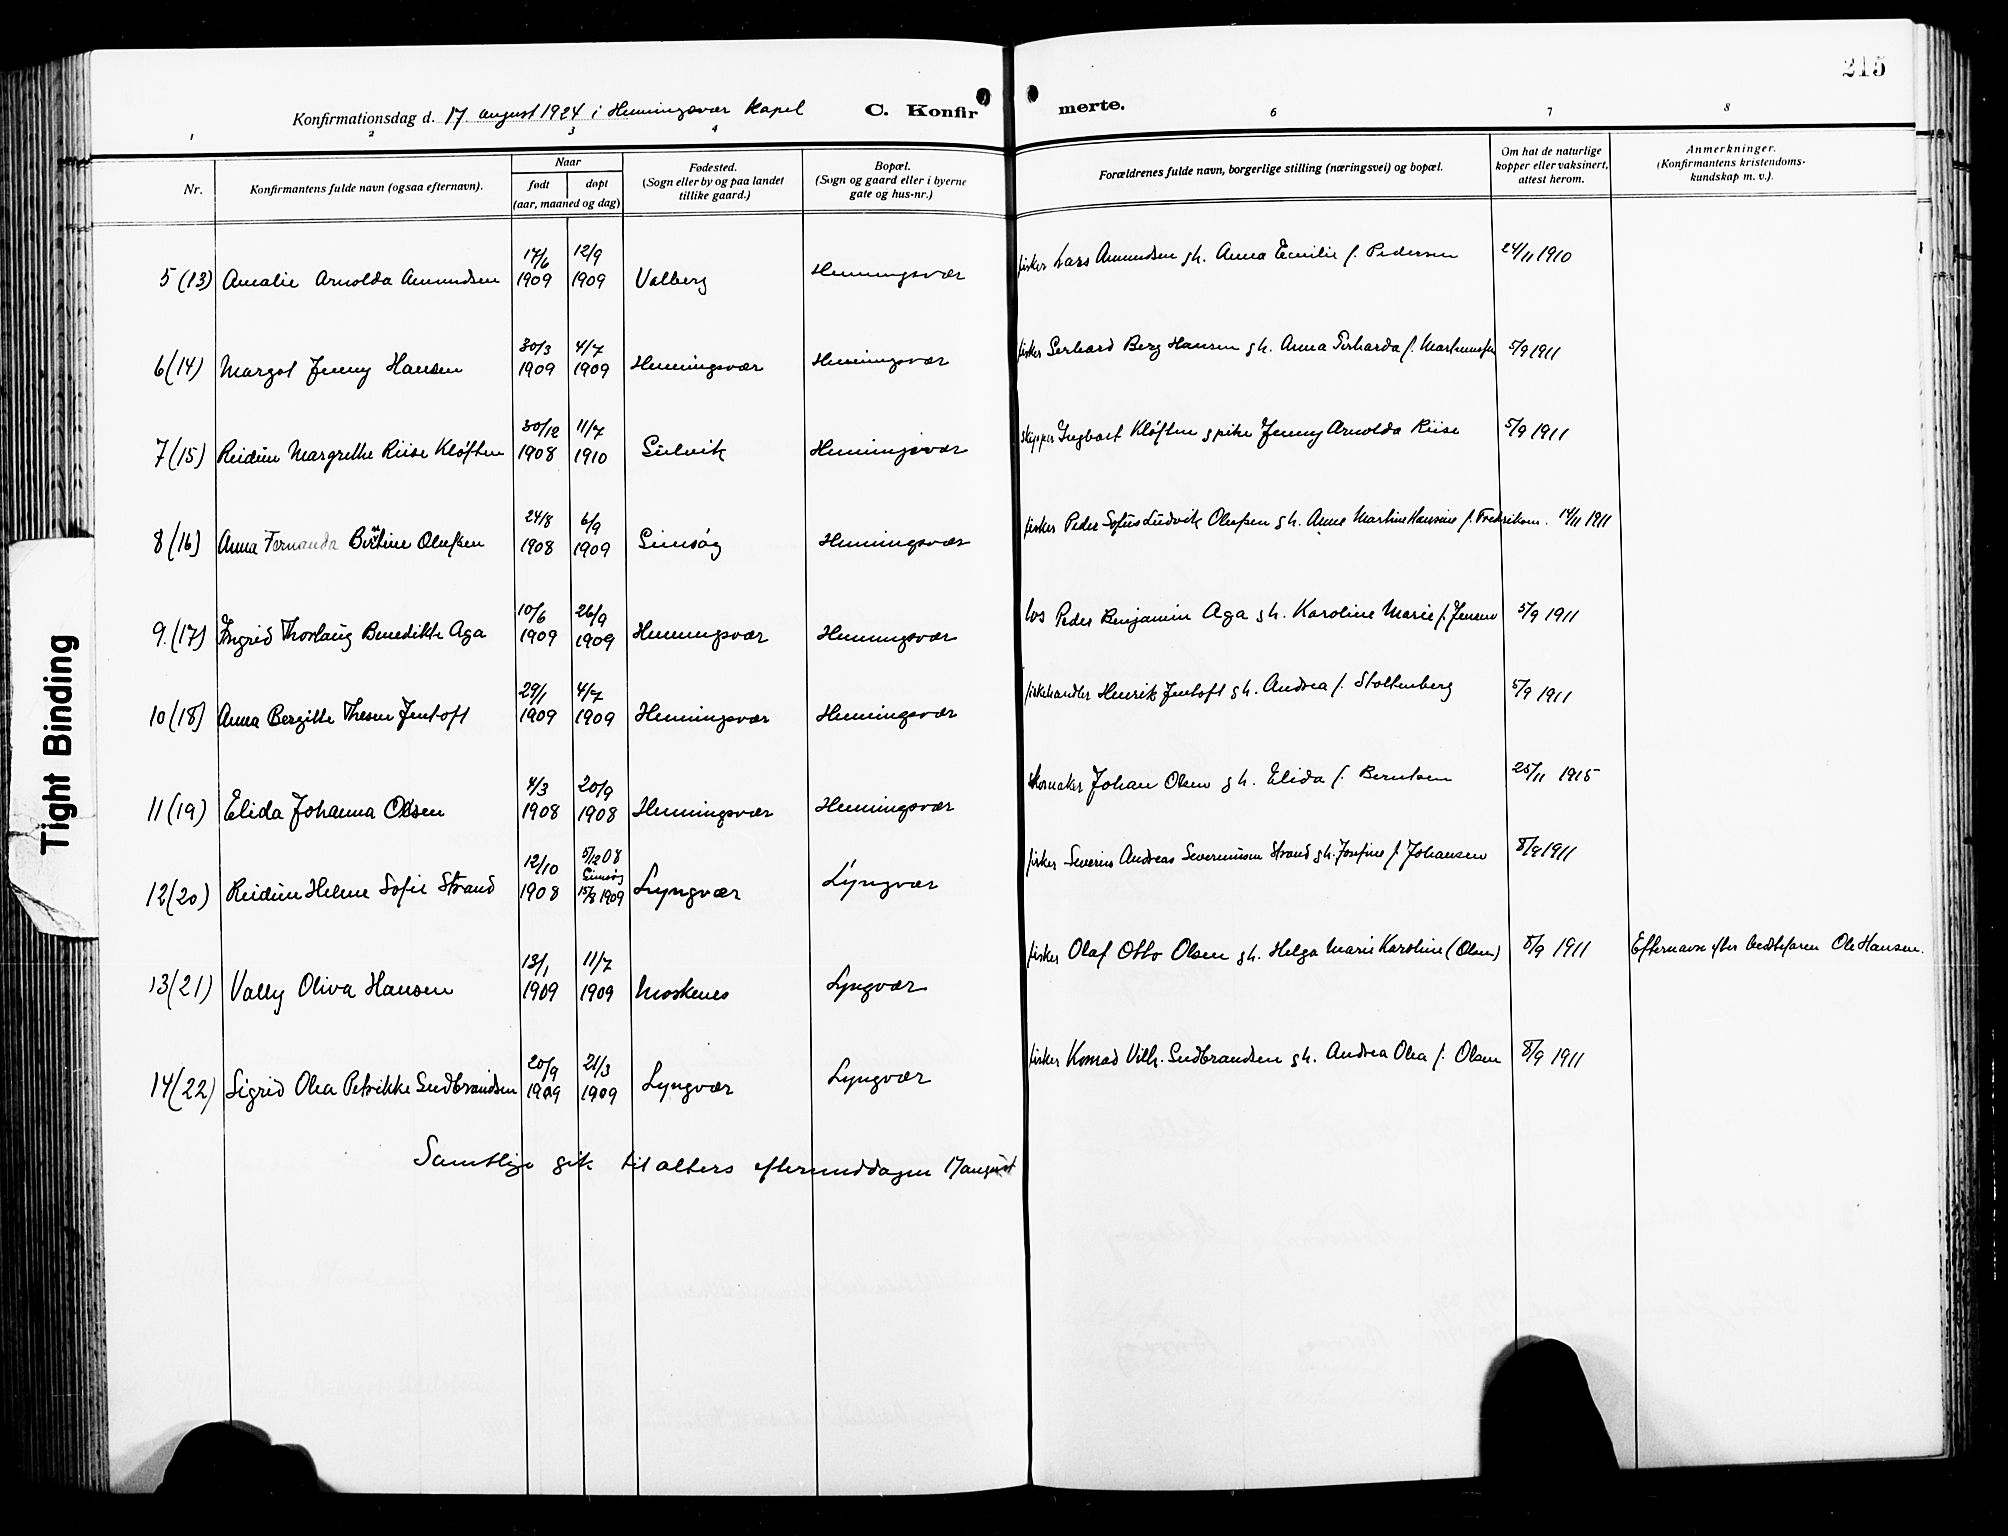 215
Konfirmationsdag d. 17 august 1924 i Henningsvær kapel
C. Konfirmerte.
1 2 3 4 6 7 8
Nr.
Konfirmantens fulde navn (ogsaa efternavn).
Naar
født døpt
(aar, maaned og dag)
Fødested.
(Sogn eller by og paa landet
tillike gaard.)
Bopæl.
(Sogn og gaard eller i byerne
gate og hus-nr.)
Forældrenes fulde navn, borgerlige stilling (næringsvei) og bopæl.
Om hat de naturlige
kopper eller vaksinert,
attest herom.
Anmerkninger.
(Konfirmantens kristendoms-
kundskap m. v.).
5 (13) Amalie Arnolda Amundsen 17/6 1909 12/9 1909 Valberg Henningsvær fisker Lars Amundsen gh. Anna Emilie f. Pedersen 24/11 1910
6 (14) Margot Jenny Hansen 30/3 1909 4/7 1909 Henningsvær Henningsvær fisker Gerhard Berg Hansen gh. Anna 5/9 1911
7 (15) Reidun Margrethe Riise Kløften 30/12 1908 11/7 1910 Henningsvær skipper Ingbart Kløften g pike Jenny Arnolda Riise 5/9 1911
8 (16) Anna Fernanda Olufsen 24/8 1908 6/9 1909 Gimsøy Henningsvær fisker Peder Sofus Ludvik Olufsen gh. Anne Martine Hansine f. Fredriksen. 14/11 1911
9. (17) Ingrid Thorlaug Benedikte Aga 10/6 1909 26/9 1909 Henningsvær Henningsvær los Peder Benjamin Aga gh. Karoline Marie f. Jensen 5/9 1911
10 (18) Anna Bergitte Thesen Jentoft 29/1 1909 4/7 1909 Henningsvær Henningsvær fiskehandler Henrik Jentoft gh. Andrea f. Stoltenberg 5/9 1911
11 (19) Elida Johanna Olsen 4/3 1908 20/9 1908 Henningsvær Henningsvær skomaker Johan Olsen gh. Elida f. Berntsen 25/11 1915
12 (20) Reidun Helene Sofie Strand 12/10 1908 5/12 08 Gimsøy 15/8 1909 Lyngvær Lyngvær fisker Severin Andreas Severinsen Strand gh. Josefine f. Johansen 8/9 1911
13 (21) Vally Oliva Hansen 13/1 1909 11/7 1909 Moskenes Lyngvær fisker Olaf Otto Olsen gh. Helga Marie Karoline (Olsen) 8/9 1911 Efternavn efter bedstefaren Ole Hansen.
14 (22) Sigrid Olea Petrikke Gudbrandsen 20/9 1909 21/3 1909 Lyngvær Lyngvær fisker Konrad Vilh. Gudbrandsen gh. Andrea Olea f. Olsen 8/9 1911
Samtlige gik til alters eftermiddagen 17 august
Tight Binding